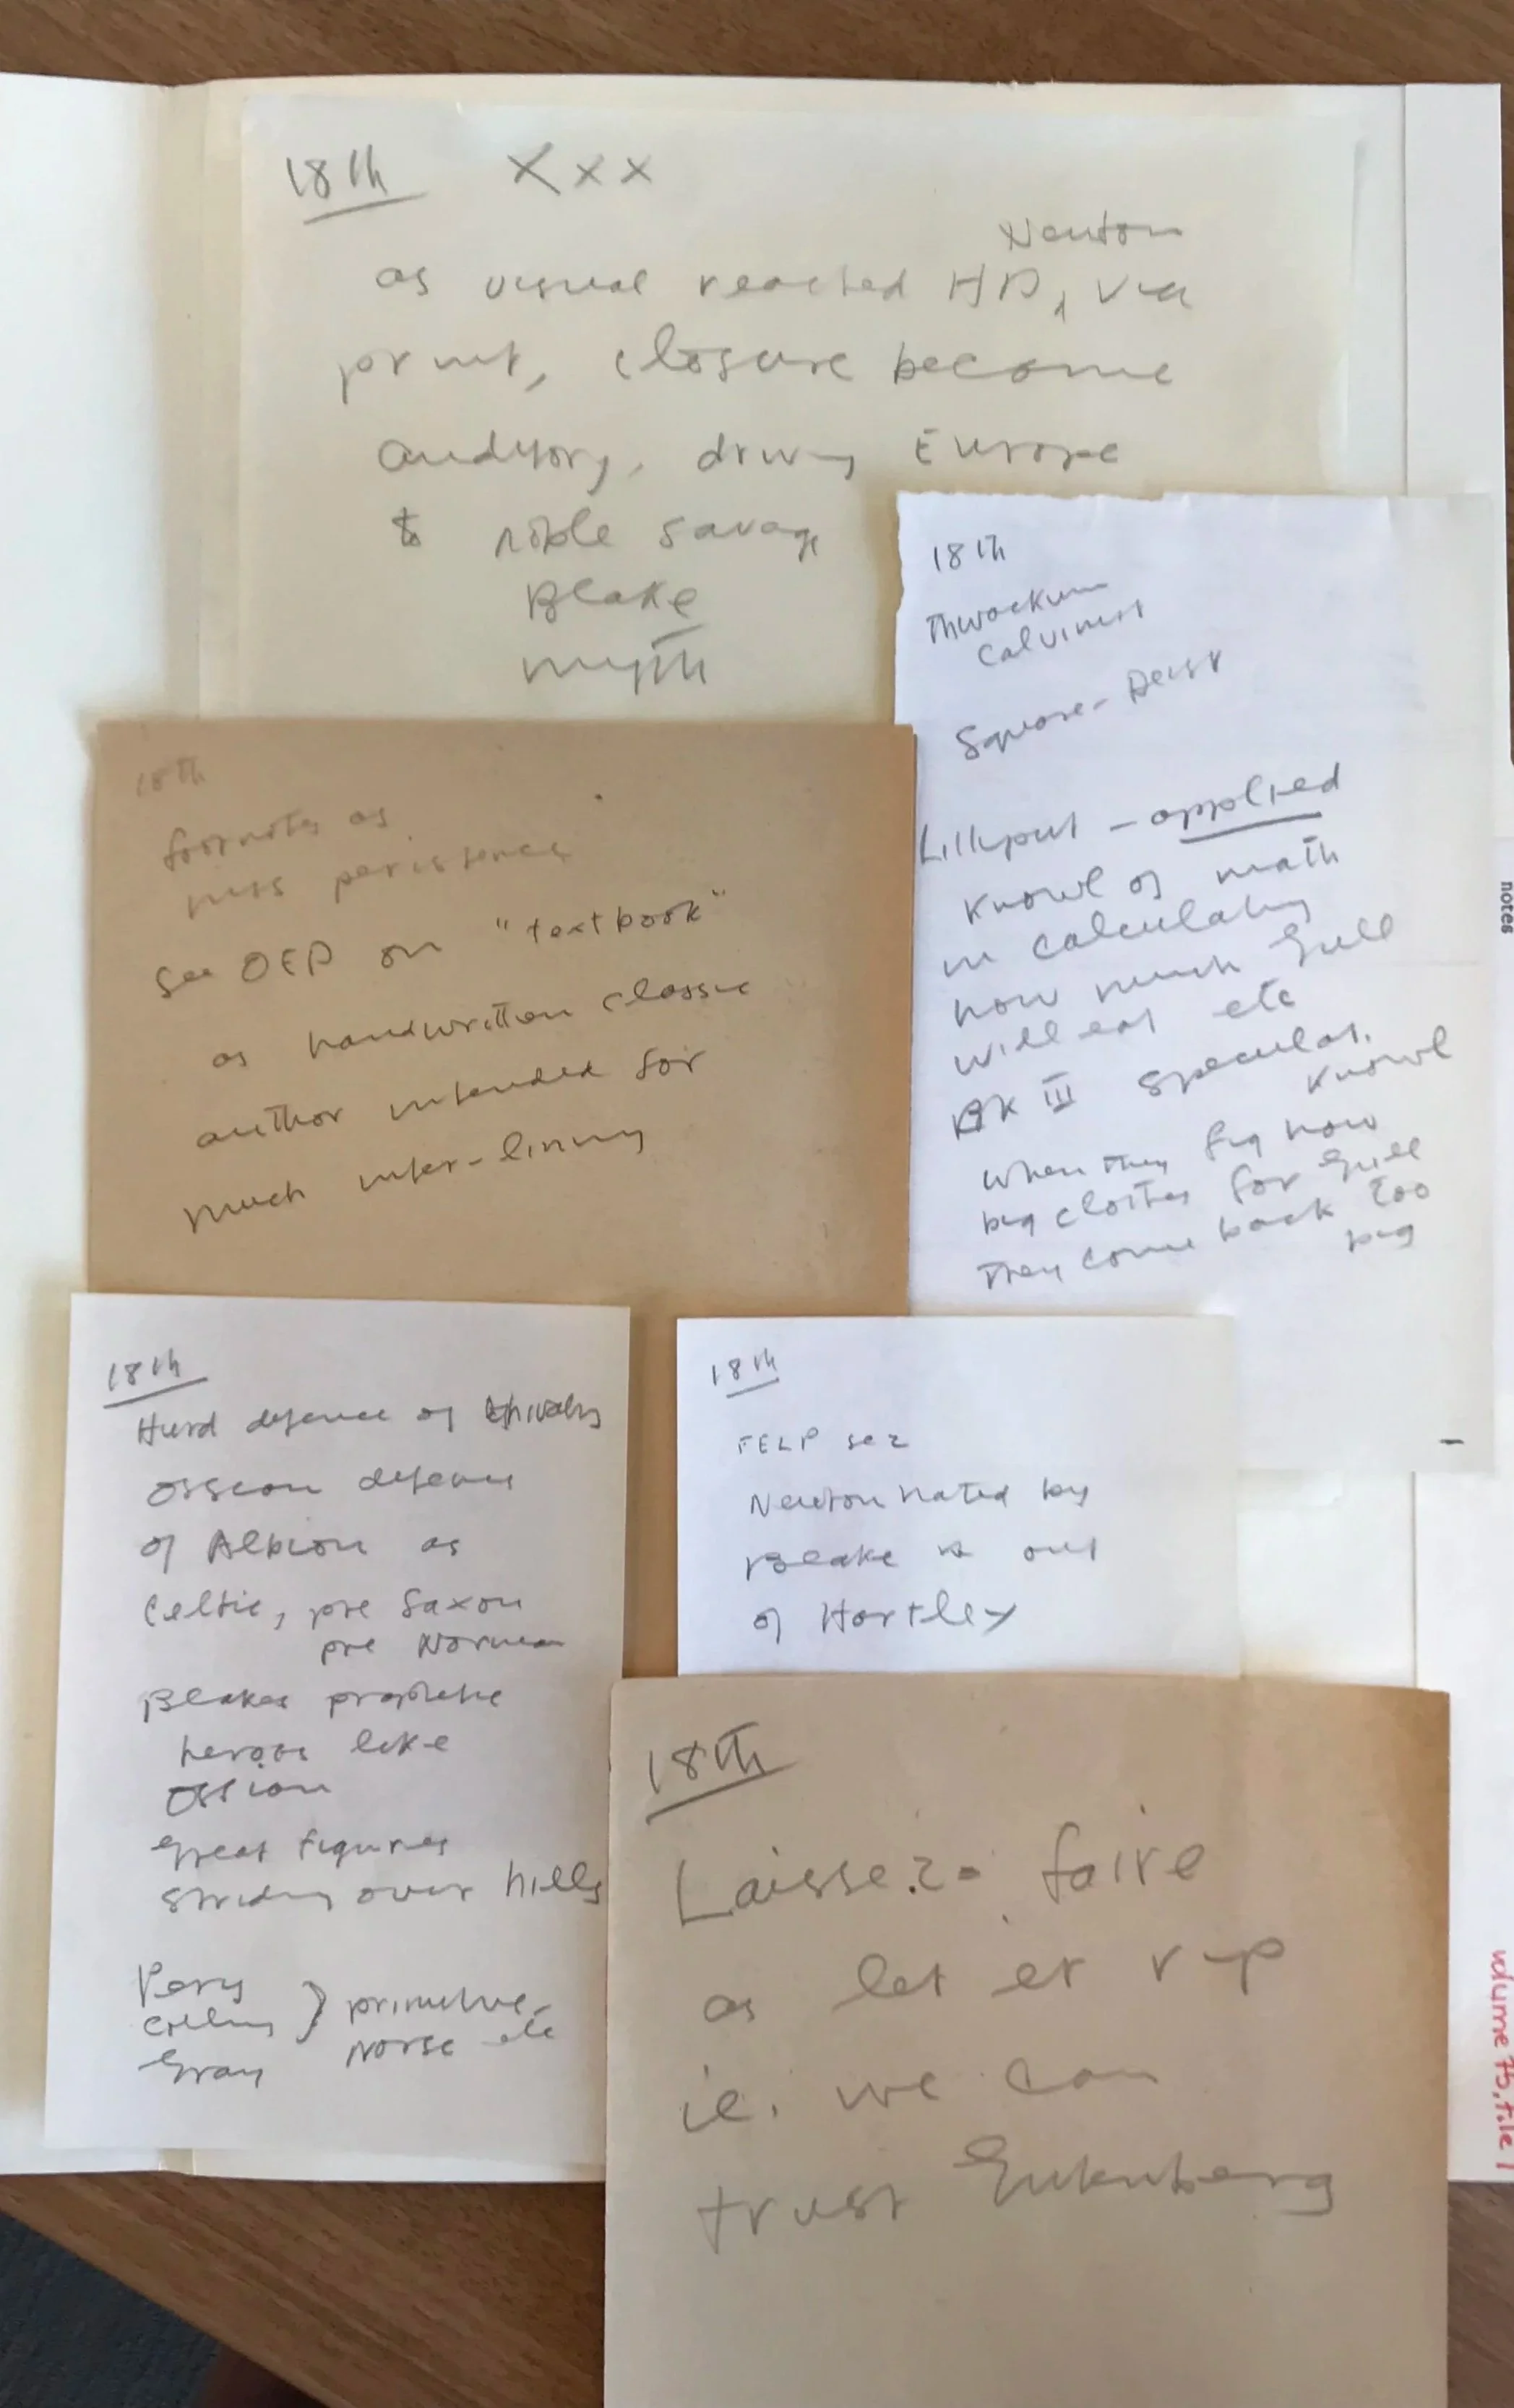 18th XXX
Newton
as visual reached HD, via
print, closure become
auditory, driving Europe
to noble savage
Blake
myth
18th
Thwackum
Calvinist
Square - Deist
Lilliput - applied
Knowl of math
in calculating
how much Gull
will eat etc
BK III speculat.
knowl
when they fig how
big clothes for Gull
They come back too
big
18th
footnotes as
mss persistence
See OED on "textbook"
as handwritten classic
author intended for
much inter-lining
18th
Hurd defence of chivalry
Ossian defence
of Albion as
Celtic, pre Saxon
pre Norman
Blakes prophetic
heroes like
Ossian
Great figures
striding over hills
Percy
Collins } primitive
Gray Norse etc
18th
FELP se 2
Newton hated by
Blake is out
of Hartley
18th
Laissez-faire
as let er rip
ie. we can
trust Gutenberg
notes
volume 75, file 1